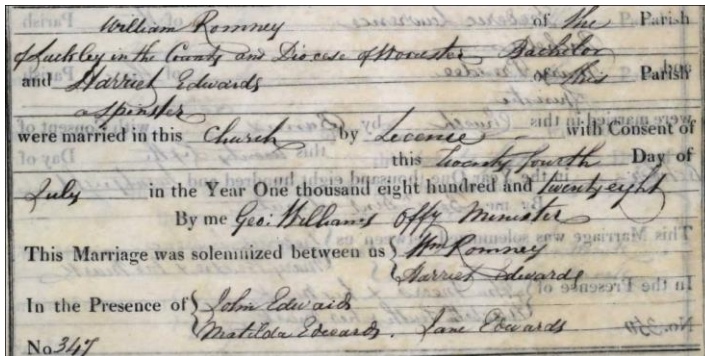 William Romney of the Parish
of Luckley in the County and Diocese of Worcester Bachelor
and Harriet Edwards of this Parish
a Spinster
were married in this Church by Licence with Consent of
this twenty fourth Day of
July in the Year One thousand eight hundred and twenty eight
By me Geo: Williams Offg Minister
This Marriage was solemnized between us { Wm Romney
Harriet Edwards
In the Presence of { John Edwards
Matilda Edwards . Jane Edwards
No. 347